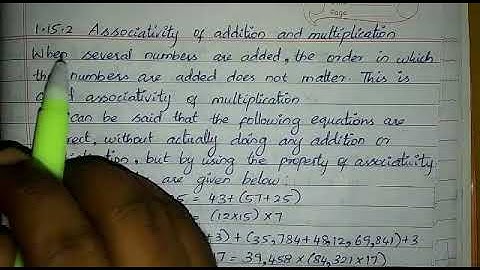 Page
1.15.2 Associativity of addition and multiplication
When several numbers are added, the order in which
the numbers are added does not matter. This is
associativity of multiplication
can be said that the following equations are
without actually doing any addition or
but by using the property of associativity
are given below:
5 = 43+(57+25)
= (12×15)×7
+3)+(35,784+48,12,69,841)+3
7 = 39,458×(84,321×17)